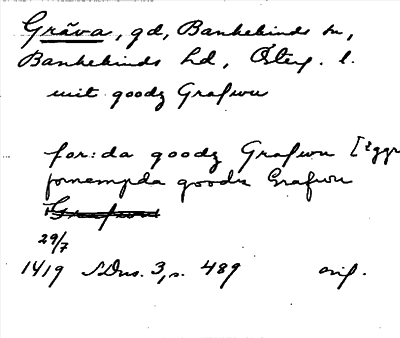 Gräva, gd, Bankekinds sn,
Bankekinds hd, Österg. l.
mit goodz Grafwu
for:da goodz Grafwu [2 ggr
fornempda goodz Grafwu
29/7
1419 SDns. 3, s. 489 orig.